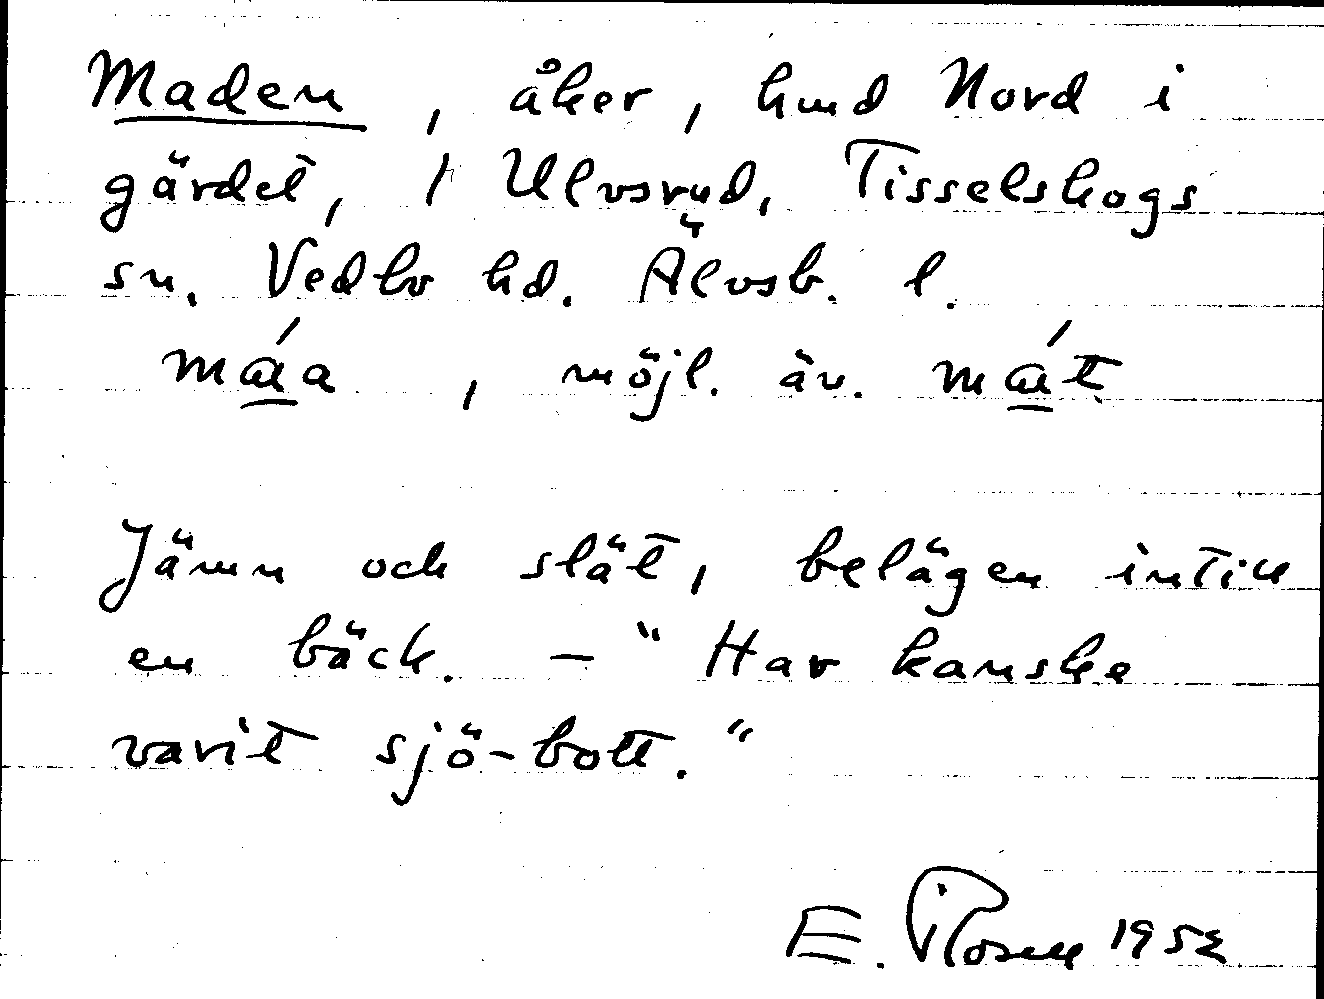 Maden, åker, hmd Nord i
gärdet, 1 Ulvsryd, Tisselskogs
sn. Vedbo hd. Älvsb. l.
máa, möjl. äv. mát
Jämn och slät, belägen intill
en bäck. – "Har kanske
varit sjö-bott."
E. 1952